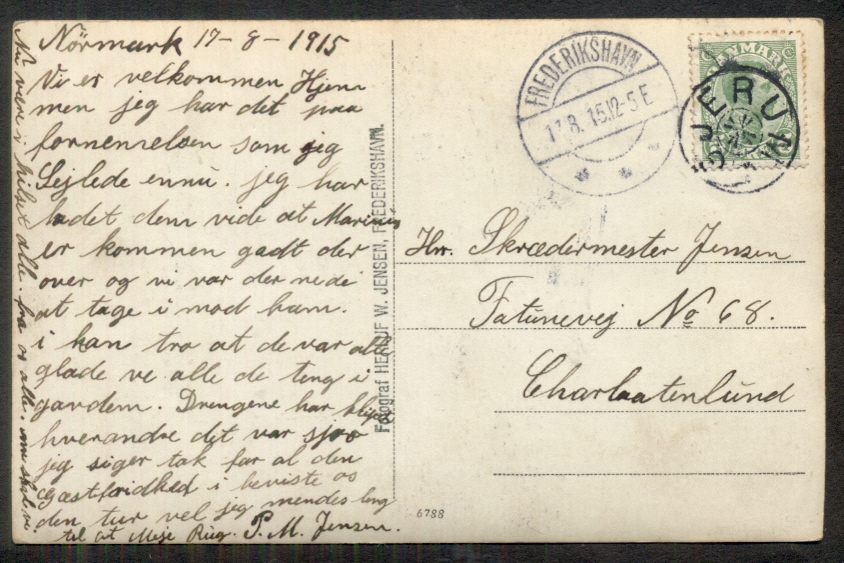 Nörmark 17-8-1915
Vi er velkommen Hjem
men jeg har det paa
fornemelsen som jeg
Sejlede ennu. jeg har
ladet dem vide at Marinus
er kommen gadt der
over og vi var der nede
at tage i mod ham.
i kan tro at de var alle
glade ve alle de teng i
gav dem. Drengene har
hverandre det var sjov
jeg siger tak for al den
Gæstfridhed i beviste os
den tur vel jeg mendes leng
til at Mise Rug. P. M. Jensen.
hilset alle fra os alle.
Fotograf HERLUF W. JENSEN, FREDERIKSHAVN.
FREDERIKSHAVN
17.8.15.12-5 E
DANMARK
JERUP
Hrr. Skrædermester Jensen
Fatunevej No 68.
Charlaatenlund
6788